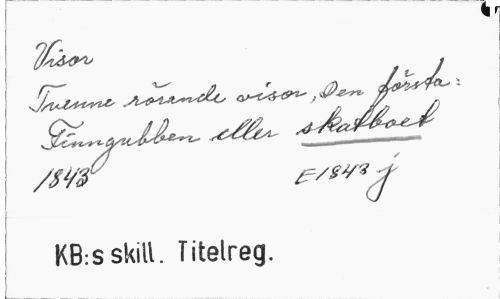 Visor
Tvenne rörande visor, Den första:
Finngubben eller skatboet
1843 E 1843 j
KB:s skill. Titelreg.